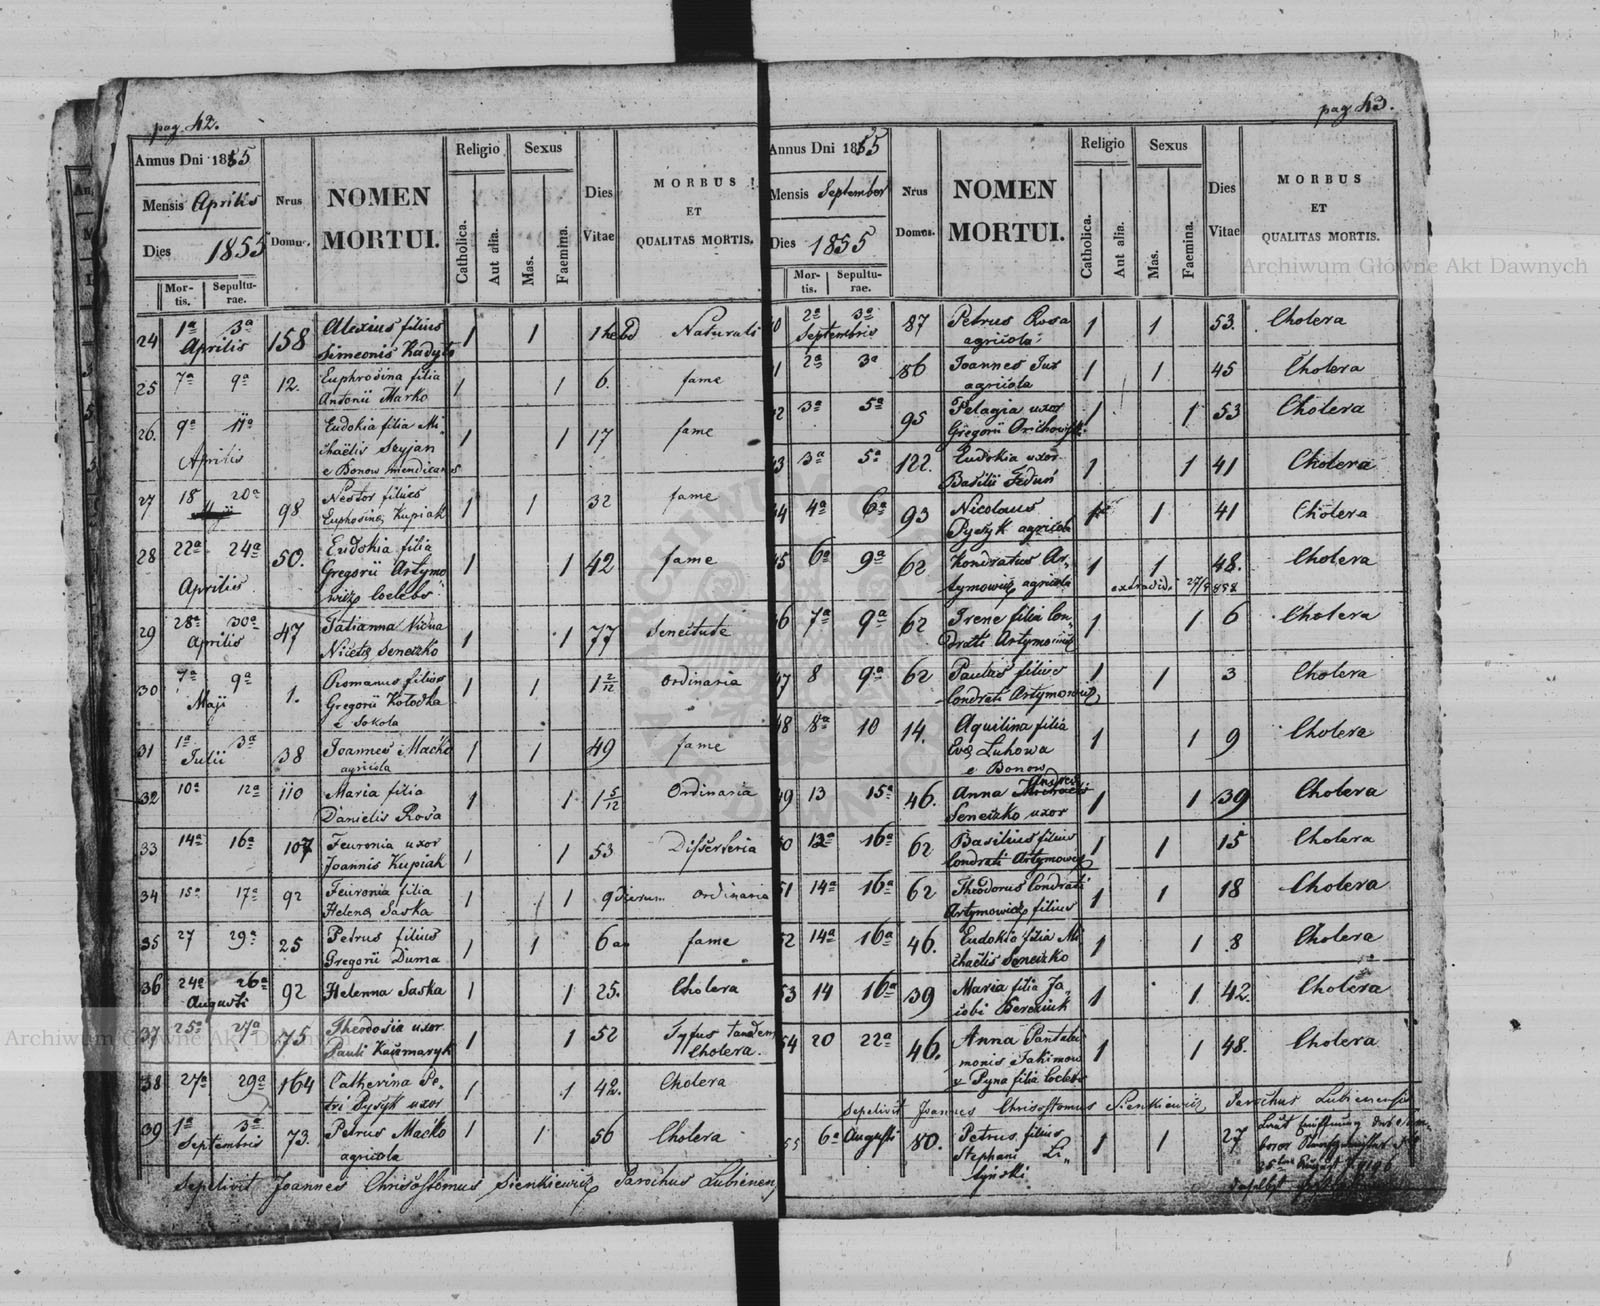 pag. 42.
Annus Dni 1855
Mensis Aprilis
Dies 1855
Mortis. Sepulturae.
Nrus Domus.
NOMEN MORTUI.
Religio
Catholica. Aut alia.
Sexus
Mas. Faemina.
Dies Vitae
MORBUS ET QUALITAS MORTIS.
24 1a 3a Aprilis 158 Alexius filius 1 1 1 hebd Naturalis
Simeonis Kadyło
25 7a 9a 12. Euphrosina filia 1 1 6. fame
Antonii Marko
26. 9a 11a Aprilis Eudokia filia Mi- 1 1 17 fame
chaëlis Seyjan
e Bonow mendicans
27 18 20a 98 Nestor filius 1 1 32 fame
Euphosinae Kupiak
28 22a 24a Aprilis 50. Eudokia filia 1 1 42 fame
Gregorii Artymo
wicz Coelebs
29 28a 30a Aprilis 47 Tatianna Vidua 1 1 77 Senectute
Nicetae Seneczko
30 7a 9a Maji 1. Romanus filius 1 1 1 2/12 Ordinaria
Gregorii Kołodka
e Sokola
31 1a 3a Julii 38 Joannes Maćko 1 1 49 fame
agricola
32 10a 12a 110 Maria filia 1 1 1 5/12 Ordinaria
Danielis Rosa
33 14a 16a 107 Feuronia uxor 1 1 53 Dissenteria
Joannis Kupiak
34 15a 17a 92 Feuronia filia 1 1 9 dierum Ordinaria
Helenae Saska
35 27 29a 25 Petrus filius 1 1 6 an fame
Gregorii Duma
36 24a 26a Augusti 92 Helenna Saska 1 1 25. Cholera
37 25a 27a 75 Theodosia uxor 1 1 52 Tyfus tandem
Pauli Kaczmaryk Cholera.
38 27a 29a 164 Catherina Pe- 1 1 42. Cholera
tri Pysyk uxor
39 1a 3a Septembris 73. Petrus Maćko 1 1 56 Cholera
agricola
Sepelivit Joannes Chrisostomus Sienkiewicz Parochus Lubienen
pag. 43.
Annus Dni 1855
Mensis September
Dies 1855
Mortis. Sepulturae.
Nrus Domus.
NOMEN MORTUI.
Religio
Catholica. Aut alia.
Sexus
Mas. Faemina.
Dies Vitae
MORBUS ET QUALITAS MORTIS.
0 2a 3a Septembris 87 Petrus Rosa 1 1 53. Cholera
agricola
1 2a 3a 86 Joannes Jus 1 1 45 Cholera
agricola
2 3a 5a 95 Pelagia uxor 1 1 53 Cholera
Gregorii
3 3a 5a 122. Eudokia uxor 1 1 41 Cholera
Basilii Feduń
44 4a 6a 93 Nicolaus 1 1 41 Cholera
Pysyk agricola
45 6a 9a 62 Kondratius Ar- 1 1 48. Cholera
tymowicz agricola extradidi 27/8 858
6 7a 9a 62 Irene filia Con- 1 1 6 Cholera
drati Artymowicz
47 8 9a 62 Paulus filius 1 1 3 Cholera
Condrati Artymowicz
48 8a 10 14. Aquilina filia 1 1 9 Cholera
Evae Luhowa
e Bonow
49 13 15a 46. Anna Andreas 1 1 39 Cholera
Seneczko uxor
50 13a 16a 62 Basilius filius 1 1 15 Cholera
Condrati Artymowicz
51 14a 16a 62 Theodorus Condrati 1 1 18 Cholera
Artymowicz filius
52 14a 16a 46. Eudokia filia Mi 1 1 8 Cholera
chaëlis Seneczko
53 14 16a 39 Maria filia Ja- 1 1 42. Cholera
cobi Bereziuk
54 20 22a 46. Anna Pantalei 1 1 48. Cholera
monis Jakimow
e Ryna filia Coelebs
Sepelivit Joannes Chrisostomus Sienkiewicz Parochus Lubienensis
55 6a Augusti 80. Petrus filius 1 1 27 Laut
Stephani Li-
Archiwum Główne Akt Dawnych
Archiwum Główne Akt Dawnych